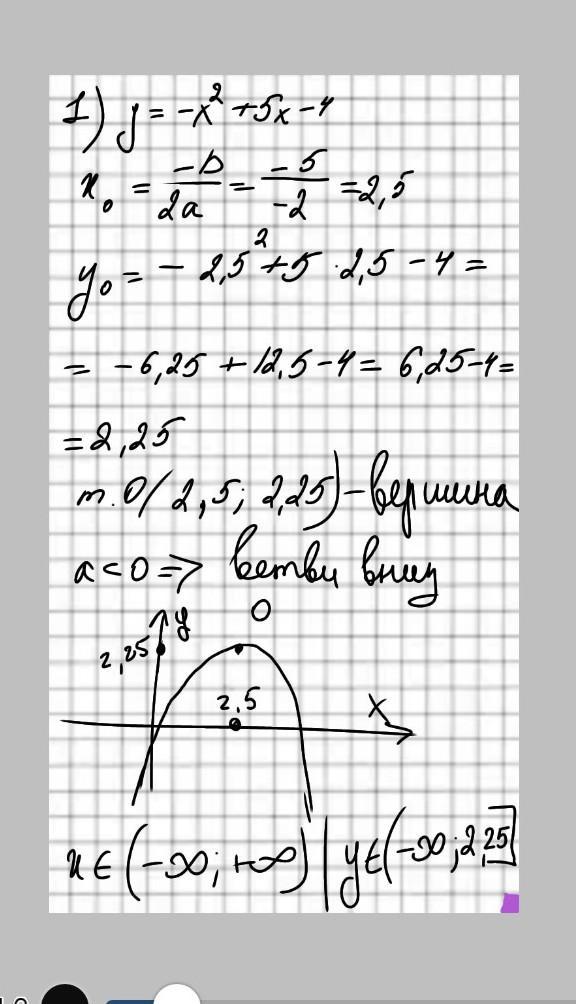 1) y = -x² + 5x - 4
x₀ = -b/2a = -5/-2 = 2,5
y₀ = - 2,5² + 5 · 2,5 - 4 =
= -6,25 + 12,5 - 4 = 6,25 - 4 =
= 2,25
т. О(2,5; 2,25) - вершина
a < 0 => ветви вниз
y O
2,25
2,5 X
x ∈ (-∞; +∞) | y ∈ (-∞; 2,25]